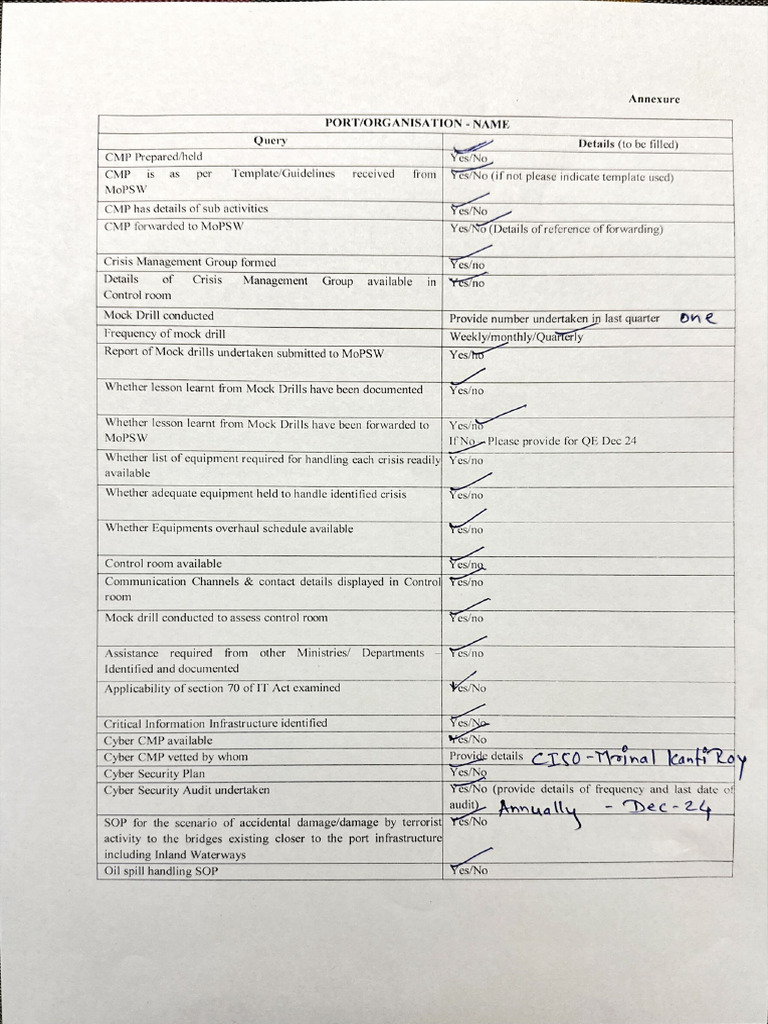 Annexure
PORT/ORGANISATION - NAME
Query Details (to be filled)
CMP Prepared/held Yes/No
CMP is as per Template/Guidelines received from Yes/No (if not please indicate template used)
MoPSW
CMP has details of sub activities Yes/No
CMP forwarded to MoPSW Yes/No (Details of reference of forwarding)
Crisis Management Group formed Yes/no
Details of Crisis Management Group available in Yes/no
Control room
Mock Drill conducted Provide number undertaken in last quarter one
Frequency of mock drill Weekly/monthly/Quarterly
Report of Mock drills undertaken submitted to MoPSW Yes/no
Whether lesson learnt from Mock Drills have been documented Yes/no
Whether lesson learnt from Mock Drills have been forwarded to Yes/no
MoPSW If No - Please provide for QE Dec 24
Whether list of equipment required for handling each crisis readily Yes/no
available
Whether adequate equipment held to handle identified crisis Yes/no
Whether Equipments overhaul schedule available Yes/no
Control room available Yes/no
Communication Channels & contact details displayed in Control Yes/no
room
Mock drill conducted to assess control room Yes/no
Assistance required from other Ministries/ Departments – Yes/no
Identified and documented
Applicability of section 70 of IT Act examined Yes/No
Critical Information Infrastructure identified Yes/No
Cyber CMP available Yes/No
Cyber CMP vetted by whom Provide details CISO - Mrinal Kanti Roy
Cyber Security Plan Yes/No
Cyber Security Audit undertaken Yes/No (provide details of frequency and last date of
audit) Annually - Dec-24
SOP for the scenario of accidental damage/damage by terrorist Yes/No
activity to the bridges existing closer to the port infrastructure
including Inland Waterways
Oil spill handling SOP Yes/No